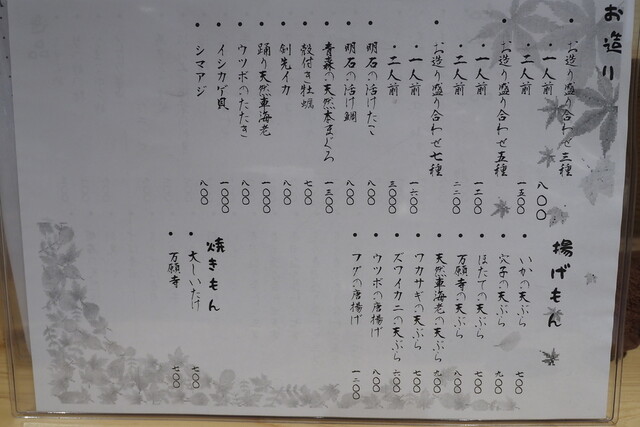 お造り
・お造り盛り合わせ三種
・一人前 八〇〇
・二人前 一五〇〇
・お造り盛り合わせ五種
・一人前 一二〇〇
・二人前 二二〇〇
・お造り盛り合わせ七種
・一人前 一六〇〇
・二人前 三〇〇〇
・明石の活けたこ 八〇〇
・明石の活け鯛 八〇〇
・青森の天然本まぐろ 一三〇〇
・殻付き牡蠣 七〇〇
・剣先イカ 八〇〇
・踊り天然車海老 一〇〇〇
・ウツボのたたき 八〇〇
・イシカゲ貝 一〇〇〇
・シマアジ 八〇〇
揚げもん
・いかの天ぷら 七〇〇
・穴子の天ぷら 九〇〇
・ほたての天ぷら 七〇〇
・万願寺の天ぷら 八〇〇
・天然車海老の天ぷら 九〇〇
・ワカサギの天ぷら 七〇〇
・ズワイカニの天ぷら 六〇〇
・ウツボの唐揚げ 八〇〇
・フグの唐揚げ 一二〇〇
焼きもん
・大しいたけ 七〇〇
・万願寺 七〇〇